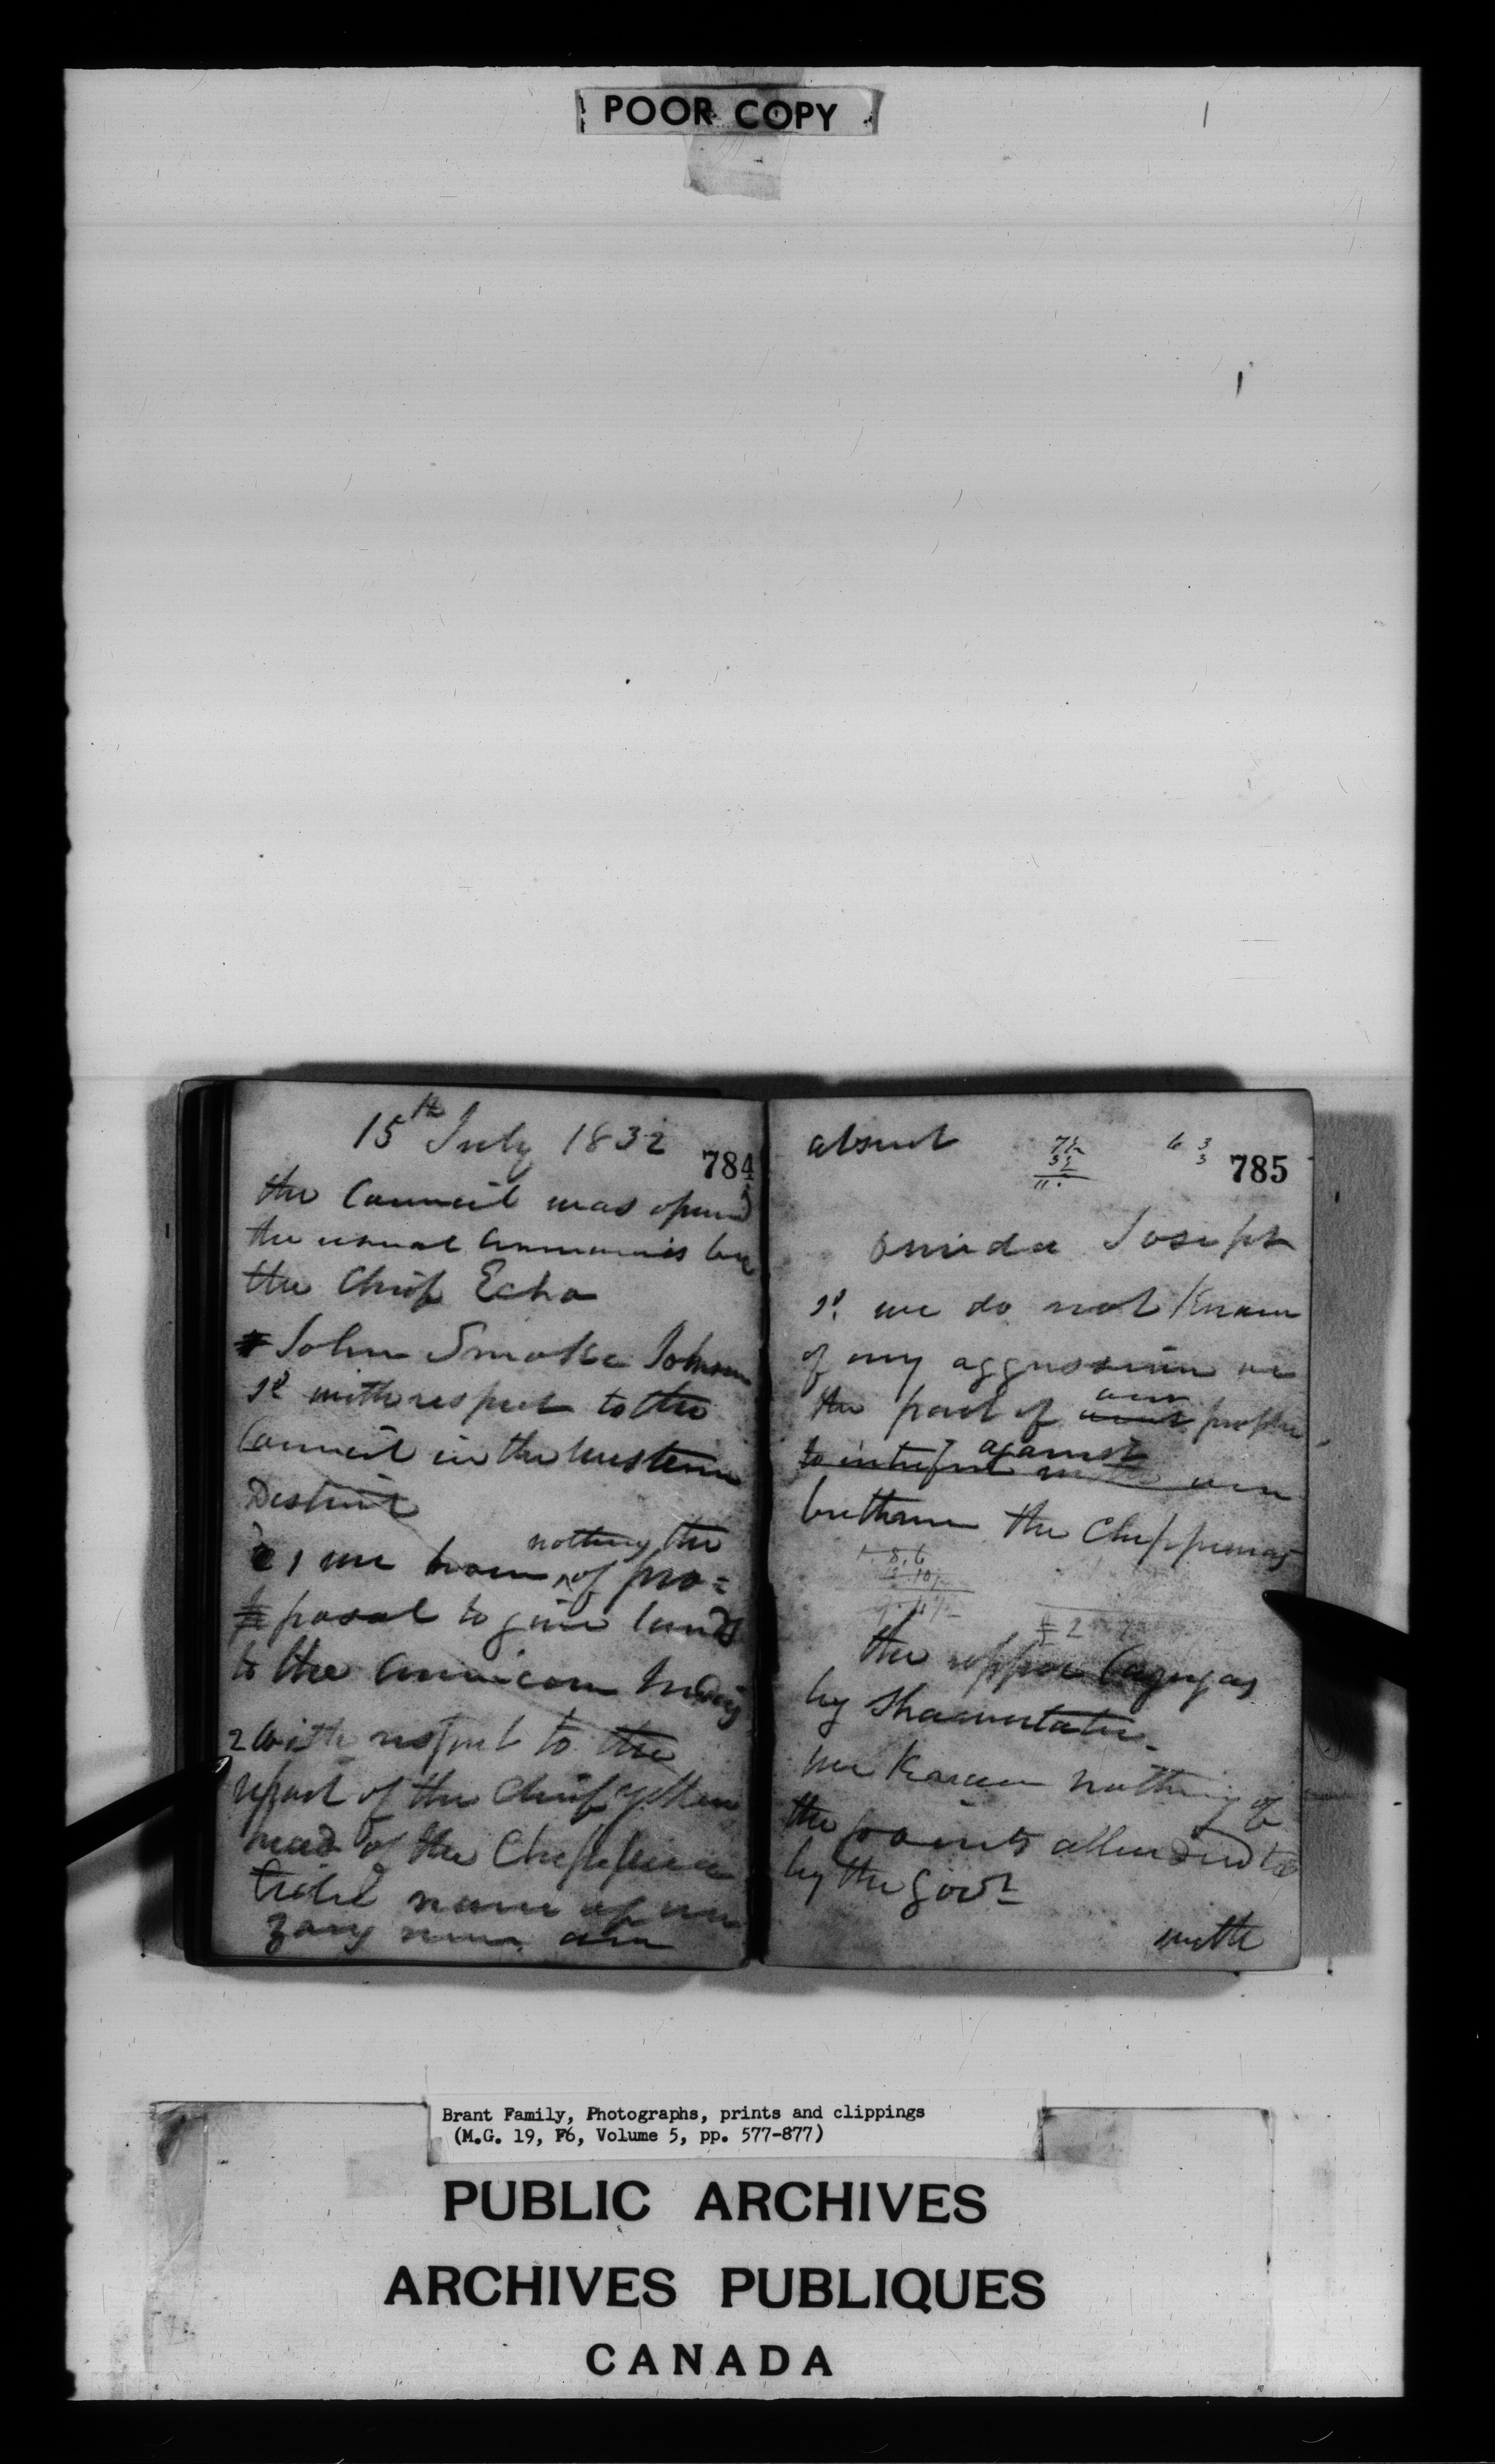 POOR COPY
15th July 1832
784
the Council was opend
the usual by
the Chief Echo
John Smoke Johnson
sd with respect to the
Council in the Western
District
1 we know nothing of the pro=
posal to give lands
to the American Indians
2 with respect to the
report of the Chief yellow
head of the Chippewa
tribe none of our
young men are
absent
785
Oneida Joseph
sd we do not know
of any aggression on
the part of our people
to against our
brethren the Chippewas
the upper Cayugas
by
we know nothing of
the points alluded to
by the Govr
with
Brant Family, Photographs, prints and clippings
(M.G. 19, F6, Volume 5, pp. 577-877)
PUBLIC ARCHIVES
ARCHIVES PUBLIQUES
CANADA